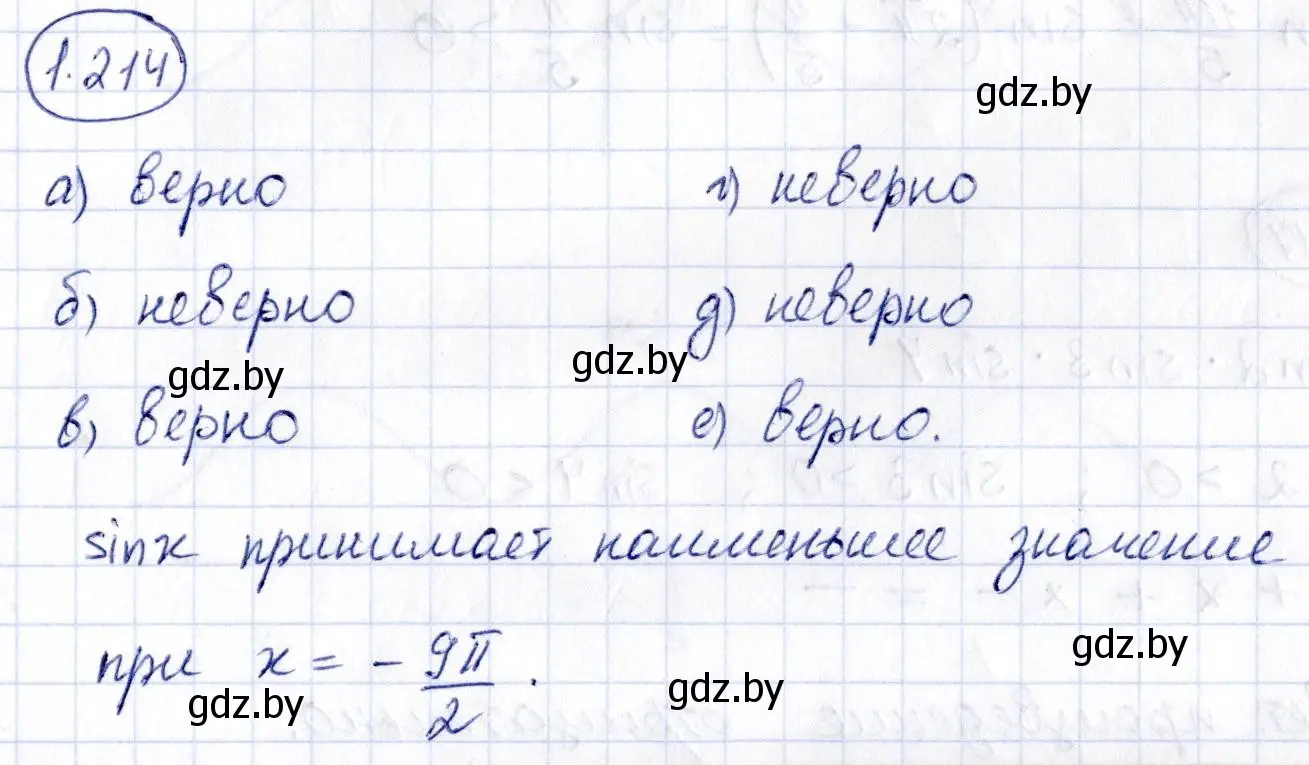 1.214
gdz.by
а) верно г) неверно
б) неверно д) неверно
gdz.by gdz.by
в) верно е) верно.
sinx принимает наименьшее значение
gdz.by
при x = - 9π/2.
gdz.by gdz.by